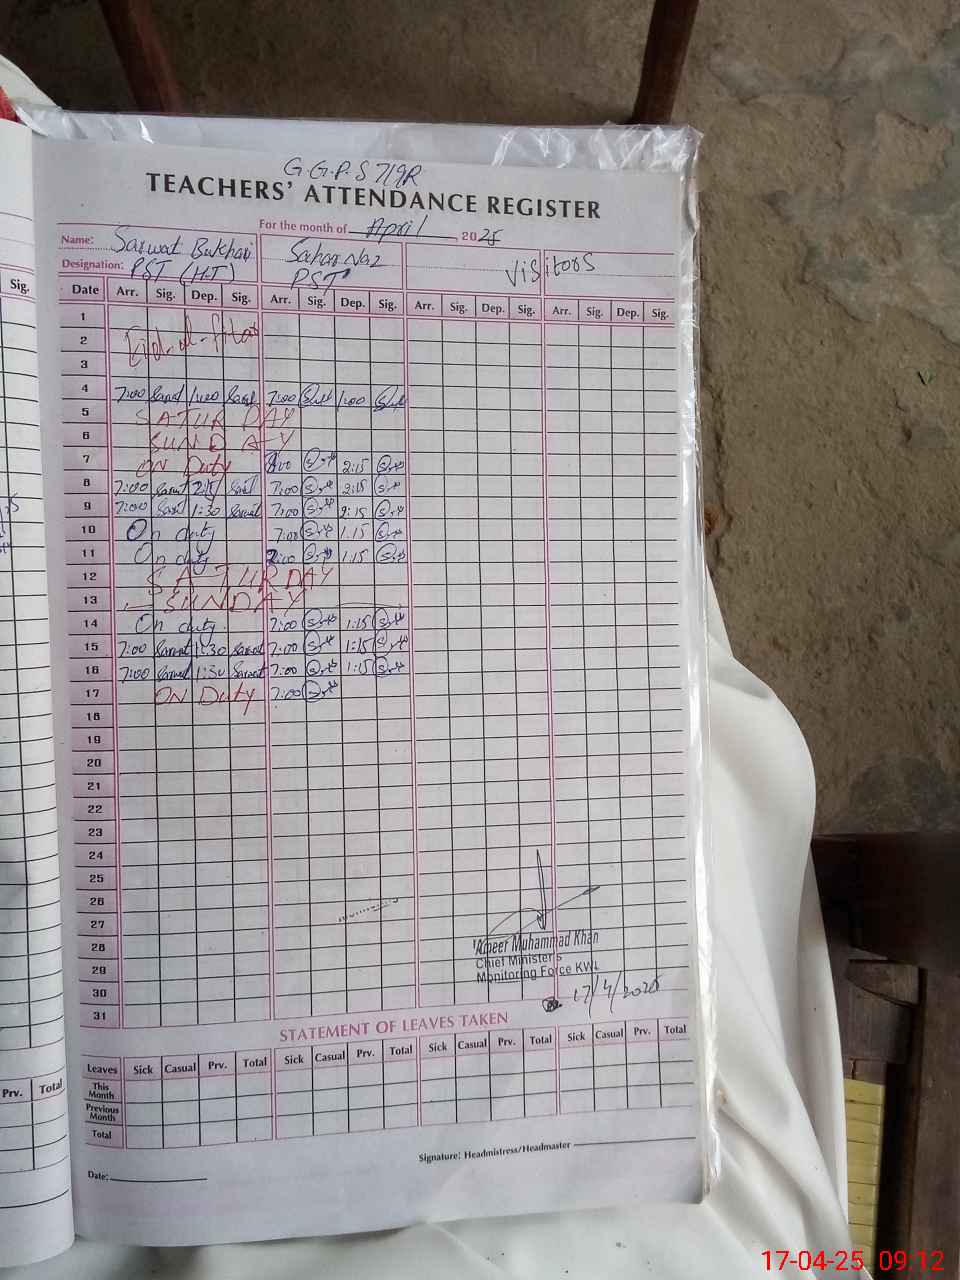 G.G.P.S 71/9R
TEACHERS' ATTENDANCE REGISTER
For the month of April, 2025
Name: Sarwat Bukhari Sahar Naz Visitors
Designation: PST (H.T) PST
Sig. Date Arr. Sig. Dep. Sig. Arr. Sig. Dep. Sig. Arr. Sig. Dep. Sig. Arr. Sig. Dep. Sig.
1
2 Eid-ul-fitar
3
4 7:00 1:00 7:00 1:00
5 SATURDAY
6 SUNDAY
7 ON Duty 2:15
8 7:00 Sarwat 2:15 7:00 2:15
9 7:00 1:30 Sarwat 7:00 2:15
10 On duty 7:00 1:15
11 On duty 7:00 1:15
12 SATURDAY
13 SUNDAY
14 On duty. 7:00 1:15
15 7:00 Sarwat 1:30 Sarwat 7:00 1:15
16 7:00 Sarwat 1:30 Sarwat 7:00 1:15
17 ON Duty 7:00
18
19
20
21
22
23
24
25
26
27
28
29
30
31
Ameer Muhammad Khan
Chief Minister's
Monitoring Force KWL
17/4/2025
STATEMENT OF LEAVES TAKEN
Prv. Total Leaves Sick Casual Prv. Total Sick Casual Prv. Total Sick Casual Prv. Total Sick Casual Prv. Total
This Month
Previous Month
Total
Signature: Headmistress/Headmaster
Date:
17-04-25 09:12